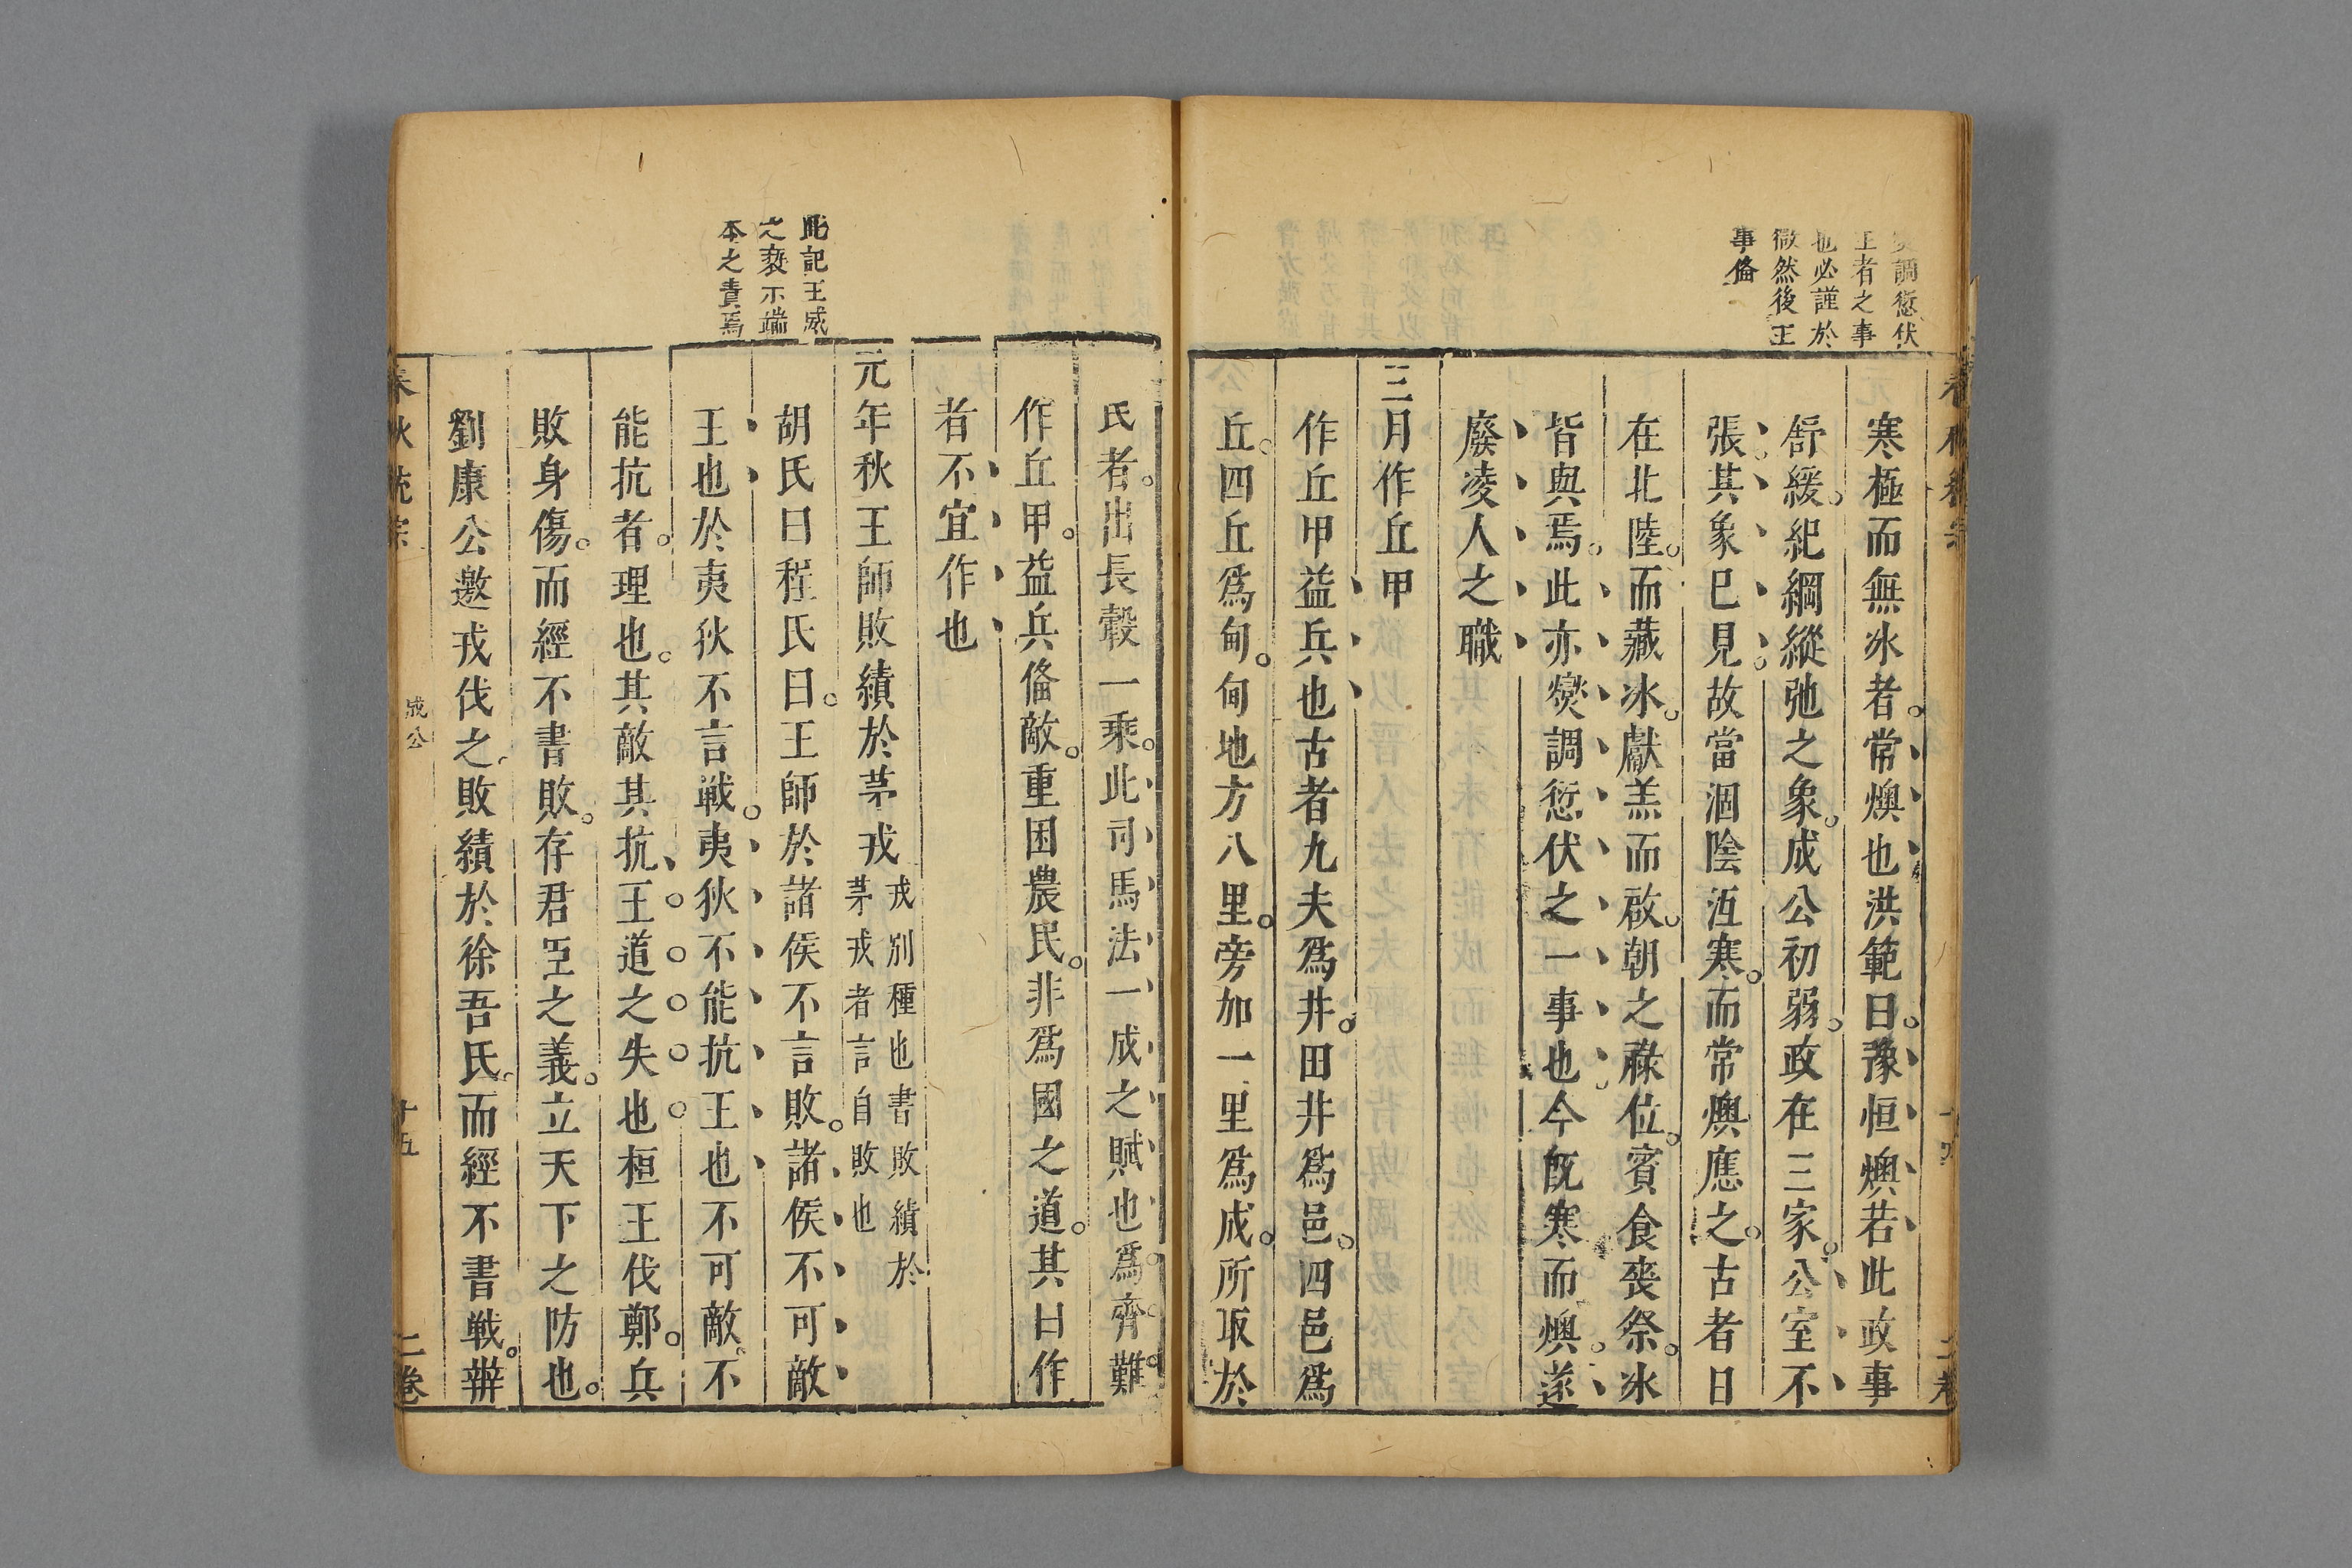 調愆伏
王者之事
也必謹於
微然後王
事俻
寒極而無冰者常燠也洪範曰豫恒燠若此政事
舒緩紀綱縱弛之象成公初弱政在三家公室不
張其象已見故當涸陰沍寒而常燠應之古者日
在北陸而藏冰獻羔而啟朝之祿位賓食喪祭冰
皆與焉此亦爕調愆伏之一事也今旣寒而燠遂
廢凌人之職
三月作丘甲
作丘甲益兵也古者九夫爲井田井爲邑四邑爲
丘四丘爲甸甸地方八里旁加一里爲成所取於
氏者出長轂一乘此司馬法一成之賦也爲齊難
作丘甲益兵俻敵重困農民非爲國之道其曰作
者不宜作也
此記王威
之褻示端
本之責焉
元年秋王師敗績於茅戎
戎別種也書敗績於
茅戎者言自敗也
胡氏曰程氏曰王師於諸侯不言敗諸侯不可敵
王也於夷狄不言戰夷狄不能抗王也不可敵不
能抗者理也其敵其抗王道之失也桓王伐鄭兵
敗身傷而經不書敗存君臣之義立天下之防也
劉康公邀戎伐之敗績於徐吾氏而經不書戰辯
春秋統宗
成公
十五
二卷